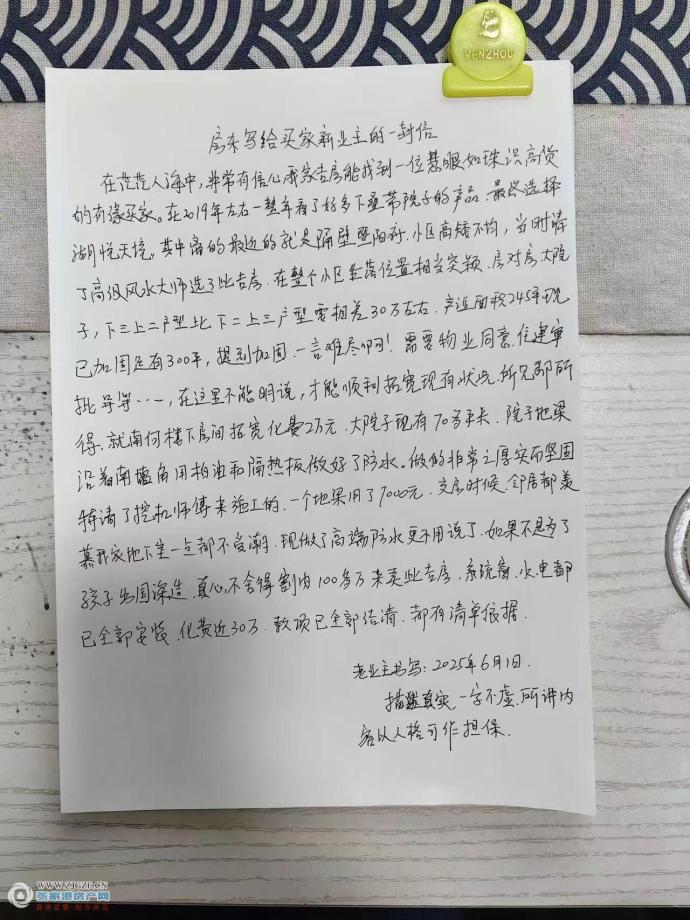 WENZHOU
房东写给买家新业主的一封信
在茫茫人海中,非常有信心我家吉房能找到一位慧眼如珠识高货
的有缘买家。在2019年左右一整年看了好多下叠带院子的产品.最终选择
湖悦天境。其中离的最近的就是隔壁 小区高矮不均,当时请
了高级风水大师选了此吉房.在整个小区坐落位置相当突颖.房对房大院
子,下三上二户型比下二上三户型要相差30万左右.产证面积245平现
已加固足有300平,提到加固.一言难尽啊!需要物业同意.住建审
批等等……,在这里不能明说,才能顺利拓宽现有状况.所见即所
得.就南向楼下房间拓宽化费2万元.大院子现有70多平米.院子地梁
沿着南墙角用柏油和隔热板做好了防水。做的非常之厚实而坚固
特请了挖机师傅来施工的.一个地梁用了7000元.交房时候.邻居都羡
慕我家地下室一点都不受潮.现做了高端防水更不用说了.如果不是为了
孩子出国深造.真心不舍得割肉100多万来卖此吉房.系统窗.水.电都
已全部安装.化费近30万.款项已全部结清.都有清单依据.
老业主书写:2025年6月1日.
描述真实.一字不虚.所讲内
容以人格可作担保.
WWW.ZJGZF.CN
张家港房产网